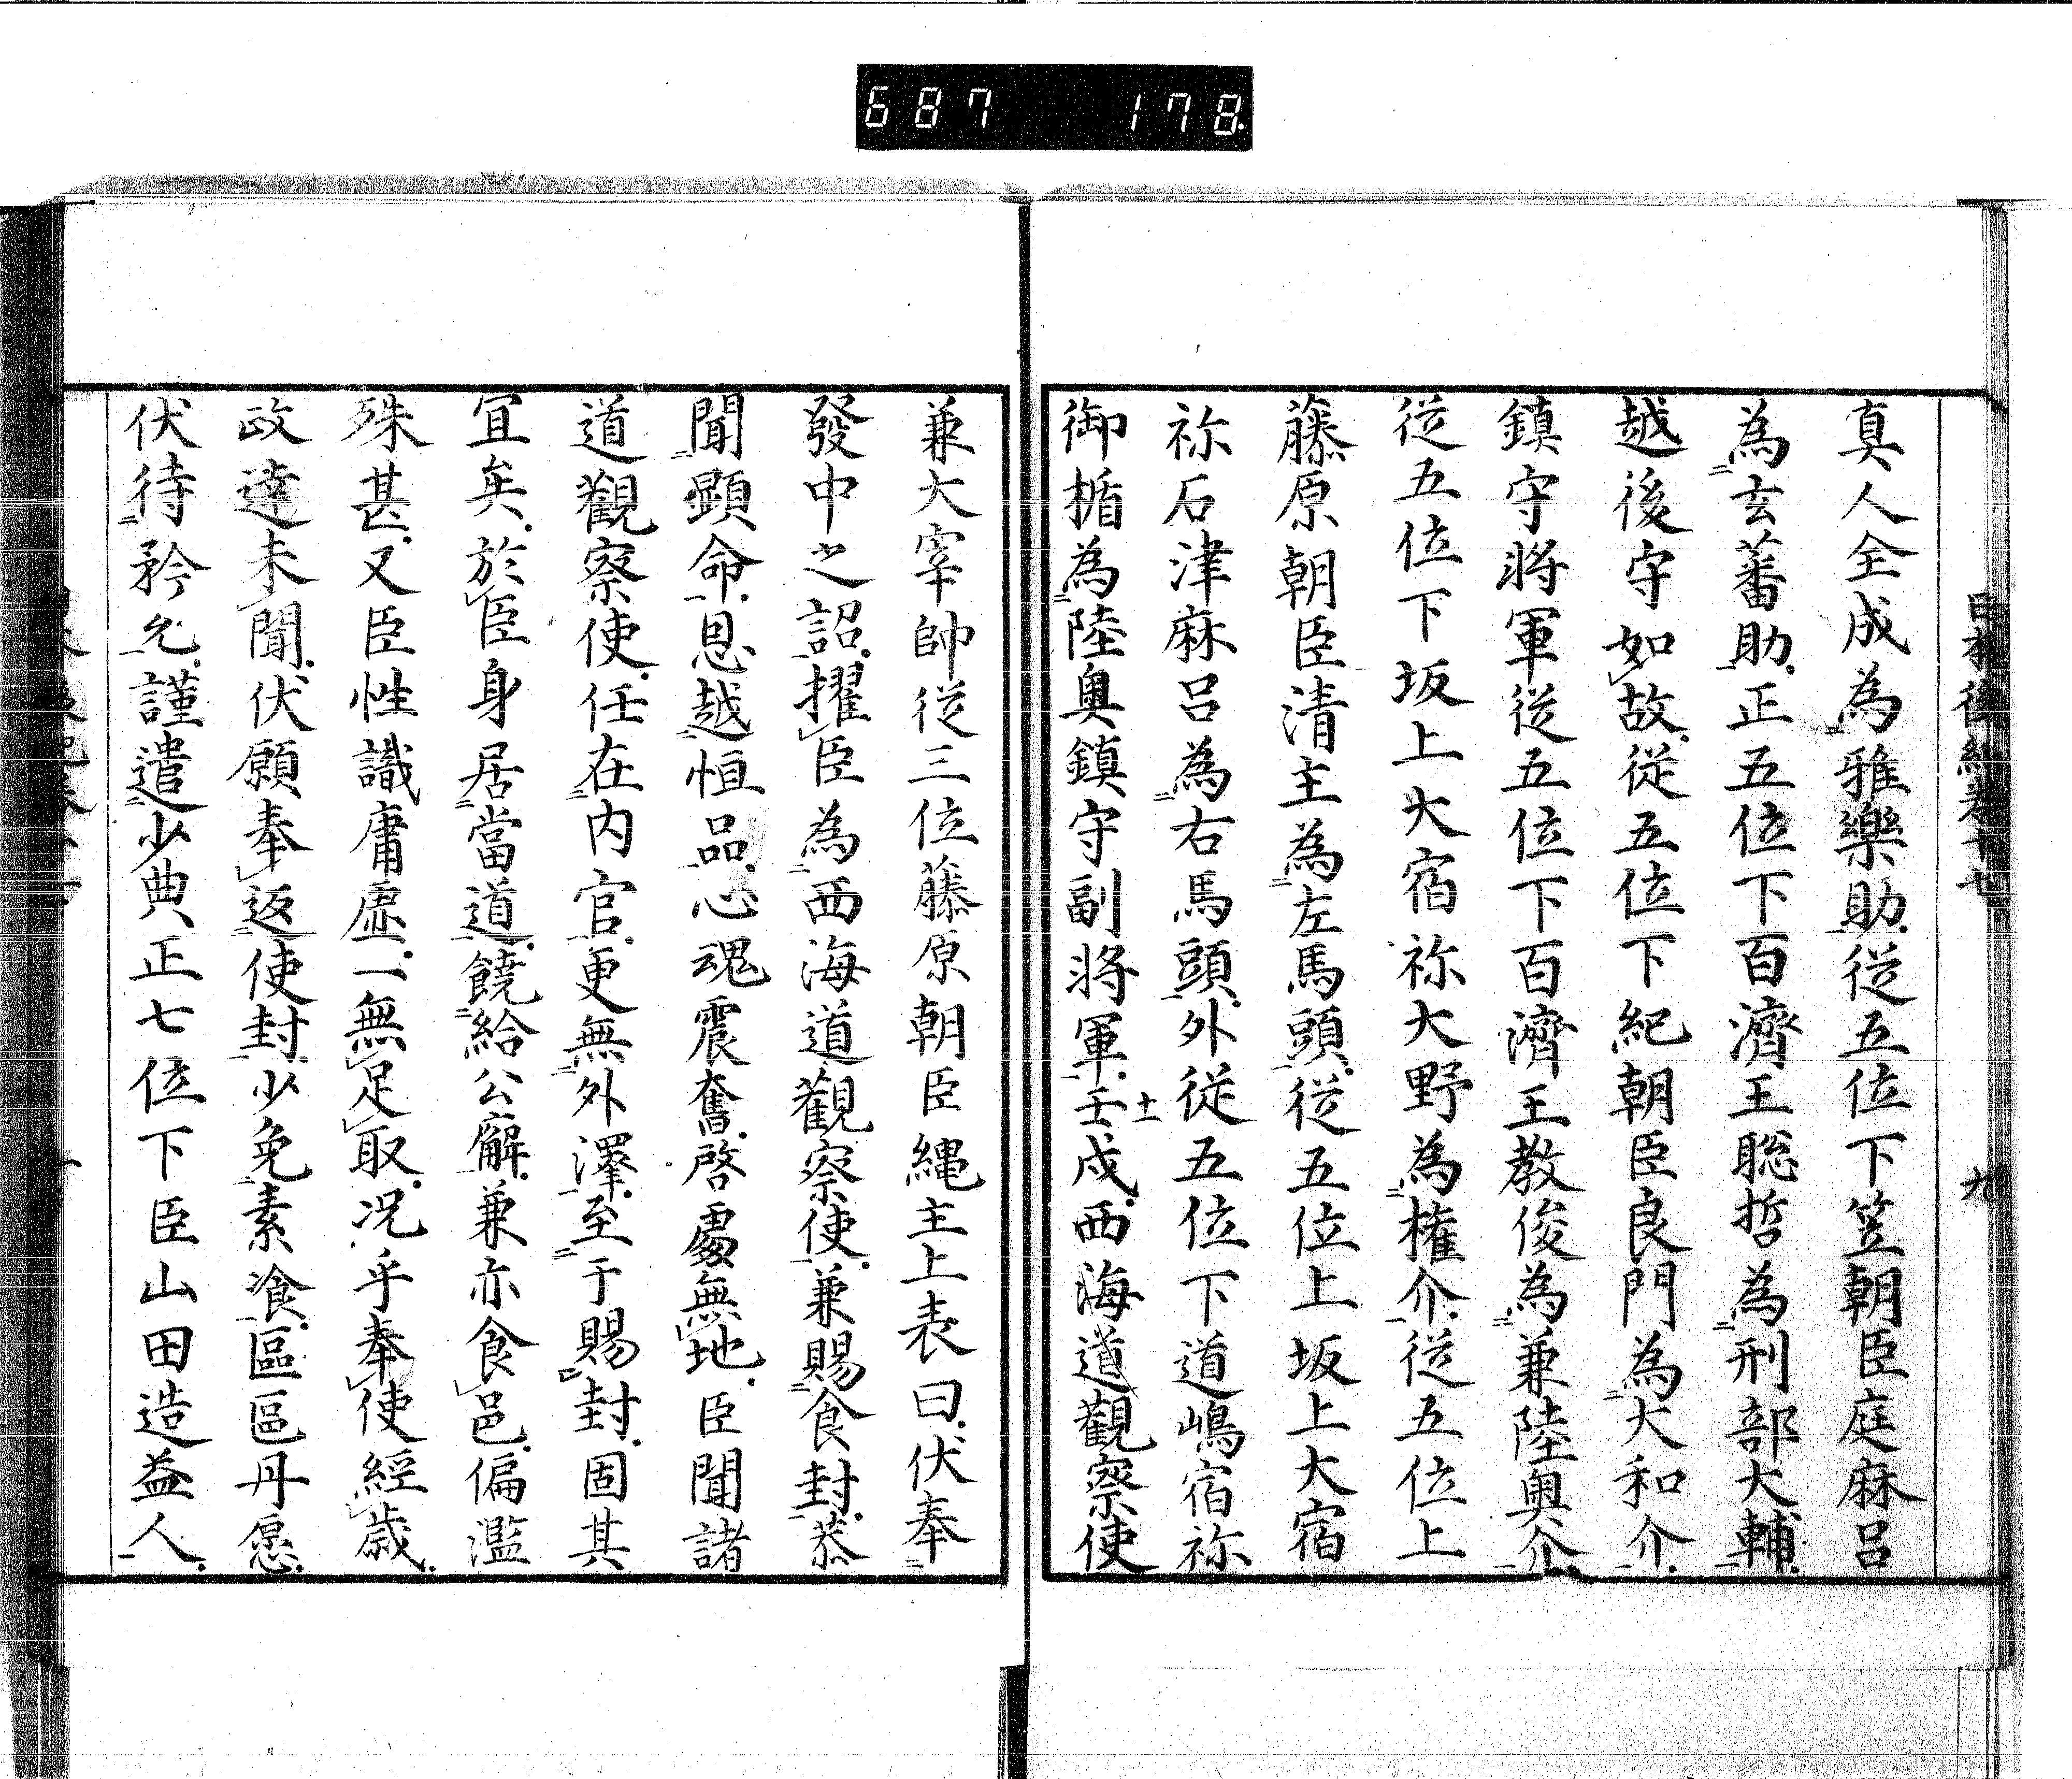 687 178
日本後紀卷十七 九
真人全成為雅樂助從五位下笠朝臣庭麻呂
為玄蕃助正五位下百濟王聡哲為刑部大輔
越後守如故從五位下紀朝臣良門為大和介
鎮守將軍從五位下百濟王教俊為兼陸奧介
從五位下坂上大宿祢大野為權介從五位上
藤原朝臣清主為左馬頭從五位上坂上大宿
祢石津麻呂為右馬頭外從五位下道嶋宿祢
御楯為陸奧鎮守副將軍壬戌西海道觀察使
十一
兼大宰帥從三位藤原朝臣縄主上表曰伏奉
發中之詔擢臣為西海道觀察使兼賜食封恭
聞顯命恩越恒品心魂震奮啓處無地臣聞諸
道觀察使任在内官更無外澤至于賜封固其
宜矣於臣身居當道饒給公廨兼亦食邑偏濫
殊甚又臣性識庸虛一無足取况乎奉使經歳
政逹未聞伏願奉返使封少免素飡區區丹愿
伏待矜允謹遣少典正七位下臣山田造益人